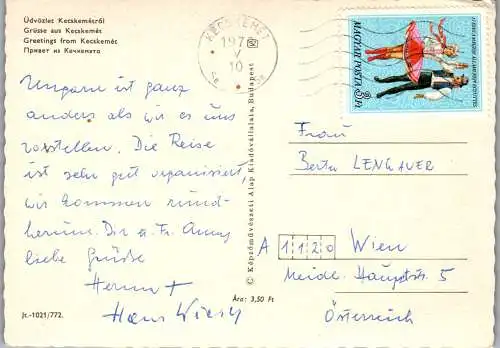 Üdvözlet Kecskemétről
Grüsse aus Kecskemét
Greetings from Kecskemét
Привет из Кечкимата
KECSKEMÉT
197
V
10
MAGYAR POSTA 3 Ft
Ungarn ist ganz
anders als wir es uns
vorstellen. Die Reise
ist sehr gut organisiert,
wir kommen rund-
herum. Dir u. Fr. Anny
liebe Grüße
Herma +
Hans
© Képzőművészeti Alap Kiadóvállalata, Budapest
Frau
Berta LENGAUER
A 1120 Wien
Meidl. Hauptstr. 5
Österreich
Ára: 3,50 Ft
Jt.-1021/772.